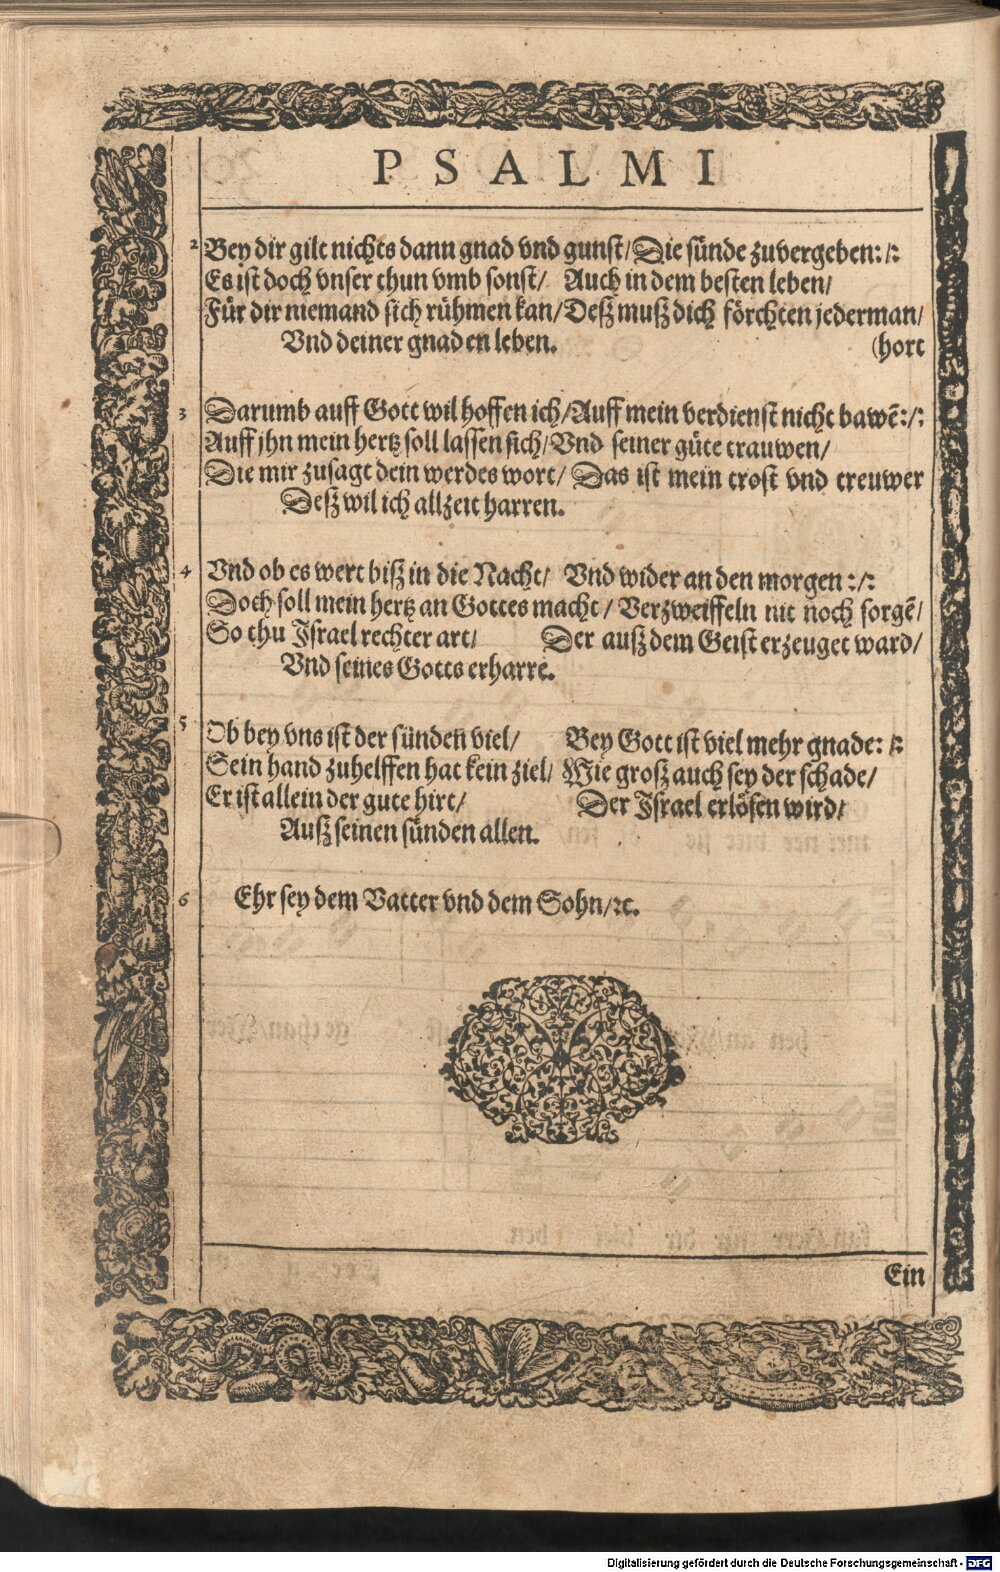 PSALMI
2 Bey dir gilt nichts dann gnad vnd gunst/ Die sünde zuvergeben:/:
Es ist doch vnser thun vmb sonst/ Auch in dem besten leben/
Für dir niemand sich rühmen kan/ Deß muß dich förchten jederman/
Vnd deiner gnaden leben. (hort
3 Darumb auff Gott wil hoffen ich/ Auff mein verdienst nicht bawẽ:/:
Auff jhn mein hertz soll lassen sich/ Vnd seiner güte trauwen/
Die mir zusagt dein werdes wort/ Das ist mein trost vnd treuwer
Deß wil ich allzeit harren.
4 Vnd ob es wert biß in die Nacht/ Vnd wider an den morgen:/:
Doch soll mein hertz an Gottes macht/ Verzweiffeln nit noch sorgẽ/
So thu Israel rechter art/ Der auß dem Geist erzeuget ward/
Vnd seines Gotts erharre.
5 Ob bey vns ist der sünden viel/ Bey Gott ist viel mehr gnade:/:
Sein hand zuhelffen hat kein ziel/ Wie groß auch sey der schade/
Er ist allein der gute hirt/ Der Israel erlösen wird/
Auß seinen sünden allen.
6 Ehr sey dem Vatter vnd dem Sohn/ꝛc.
Ein
Digitalisierung gefördert durch die Deutsche Forschungsgemeinschaft - DFG